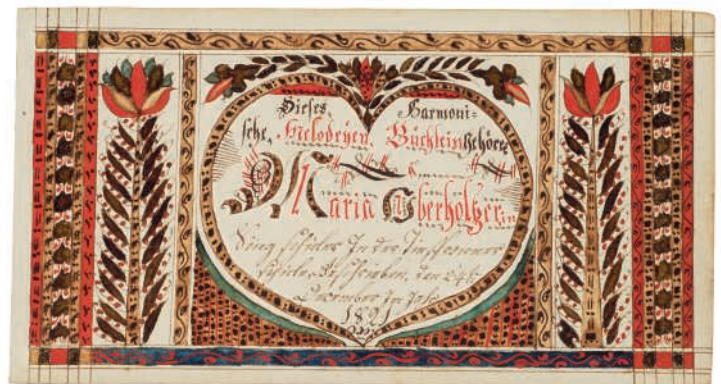 Dieses Harmoni=
sche Melodeyen Büchlein gehöret
Maria Oberholtzerin
Sing schüler In der
schule, Geschrieben, den
December Im Jahr
1821